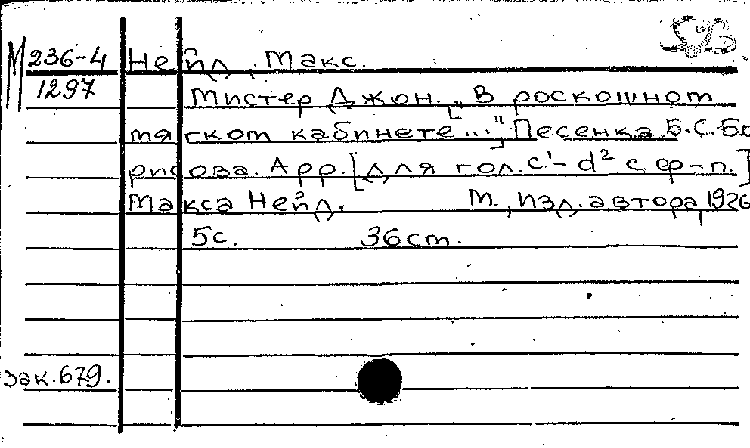 М 236-4 Нейл, Макс.
1297 Мистер Джон. ["В роскошном
мягском кабинете..."] Песенка Б.С. Бо
рисова. Арр. [для гол. c¹- d² с ф-п.]
Макса Нейл. М., изд. автора, 1926
5с. 36 см.
зак. 679.